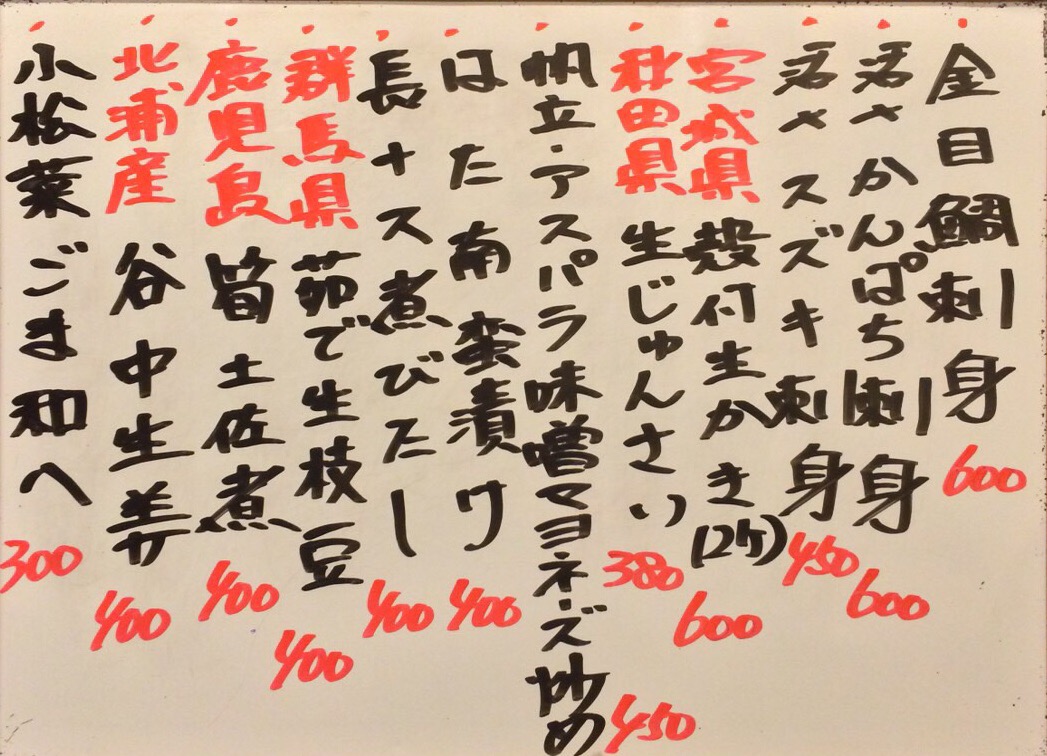 金目鯛刺身 600
活〆かんぱち刺身 600
活〆スズキ刺身 450
宮城県 殻付生かき(2ケ) 600
秋田県 生じゅんさい 380
帆立・アスパラ味噌マヨネーズ炒め 450
はた南蛮漬け 400
長ナス煮びたし 400
群馬県 茹で生枝豆 400
鹿児島 筍土佐煮 400
北浦産 谷中生姜 400
小松菜ごま和へ 300